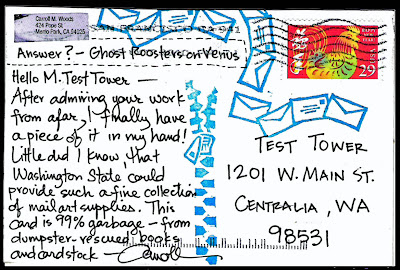 Carroll M. Woods
424 Pope St
Menlo Park, CA 94025
SAN FRANCISCO CA 941
Answer? - Ghost Roosters on Venus
Hello M. Test Tower —
After admiring your work
from afar, I finally have
a piece of it in my hand!
Little did I know, that
Washington State could
provide such a fine collection
of mail art supplies. This
card is 99% garbage - from
dumpster-rescued books
and cardstock — Carroll
29
TEST TOWER
1201 W. MAIN ST.
CENTRALIA, WA
98531